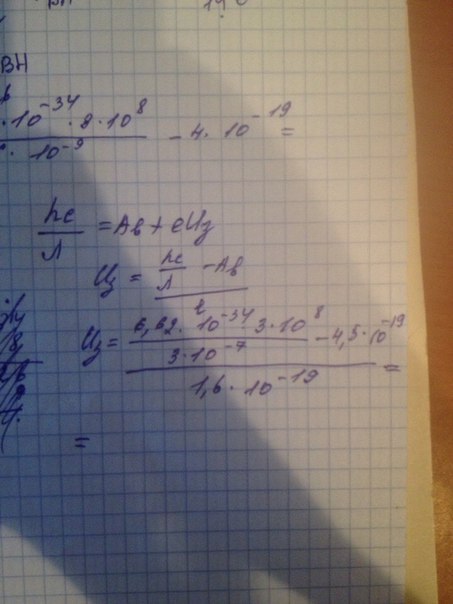 вн
· 10⁻³⁴ · 8 · 10⁸
10⁻⁹ - 4 · 10⁻¹⁹ =
hc/λ = Aв + eUз
Uз = (hc/λ - Aв)/e
Uз = (6,62 · 10⁻³⁴ · 3 · 10⁸ / 3 · 10⁻⁷ - 4,5 · 10⁻¹⁹) / 1,6 · 10⁻¹⁹ =
=